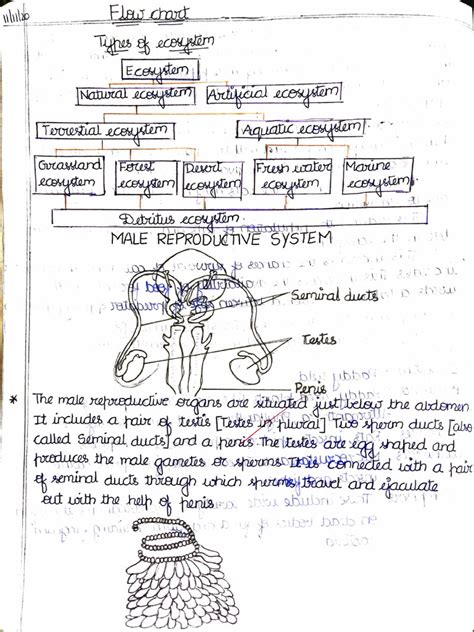 11/11/20
Flow chart
Types of ecosystem
Ecosystem
Natural ecosystem
Artificial ecosystem
Terrestial ecosystem
Aquatic ecosystem.
Grassland ecosystem
Forest ecosystem
Desert ecosystem
Fresh water ecosystem
Marine ecosystem.
Detritus ecosystem.
MALE REPRODUCTIVE SYSTEM
Seminal ducts
Testes
Penis
* The male reproductive organs are situated just below the abdomen
It includes a pair of testis [Testes in plural] Two sperm ducts [also
called Seminal ducts] and a penis. The testes are egg shaped and
produces the male gametes or sperms. It is connected with a pair
of seminal ducts through which sperms travel and ejaculate
out with the help of penis